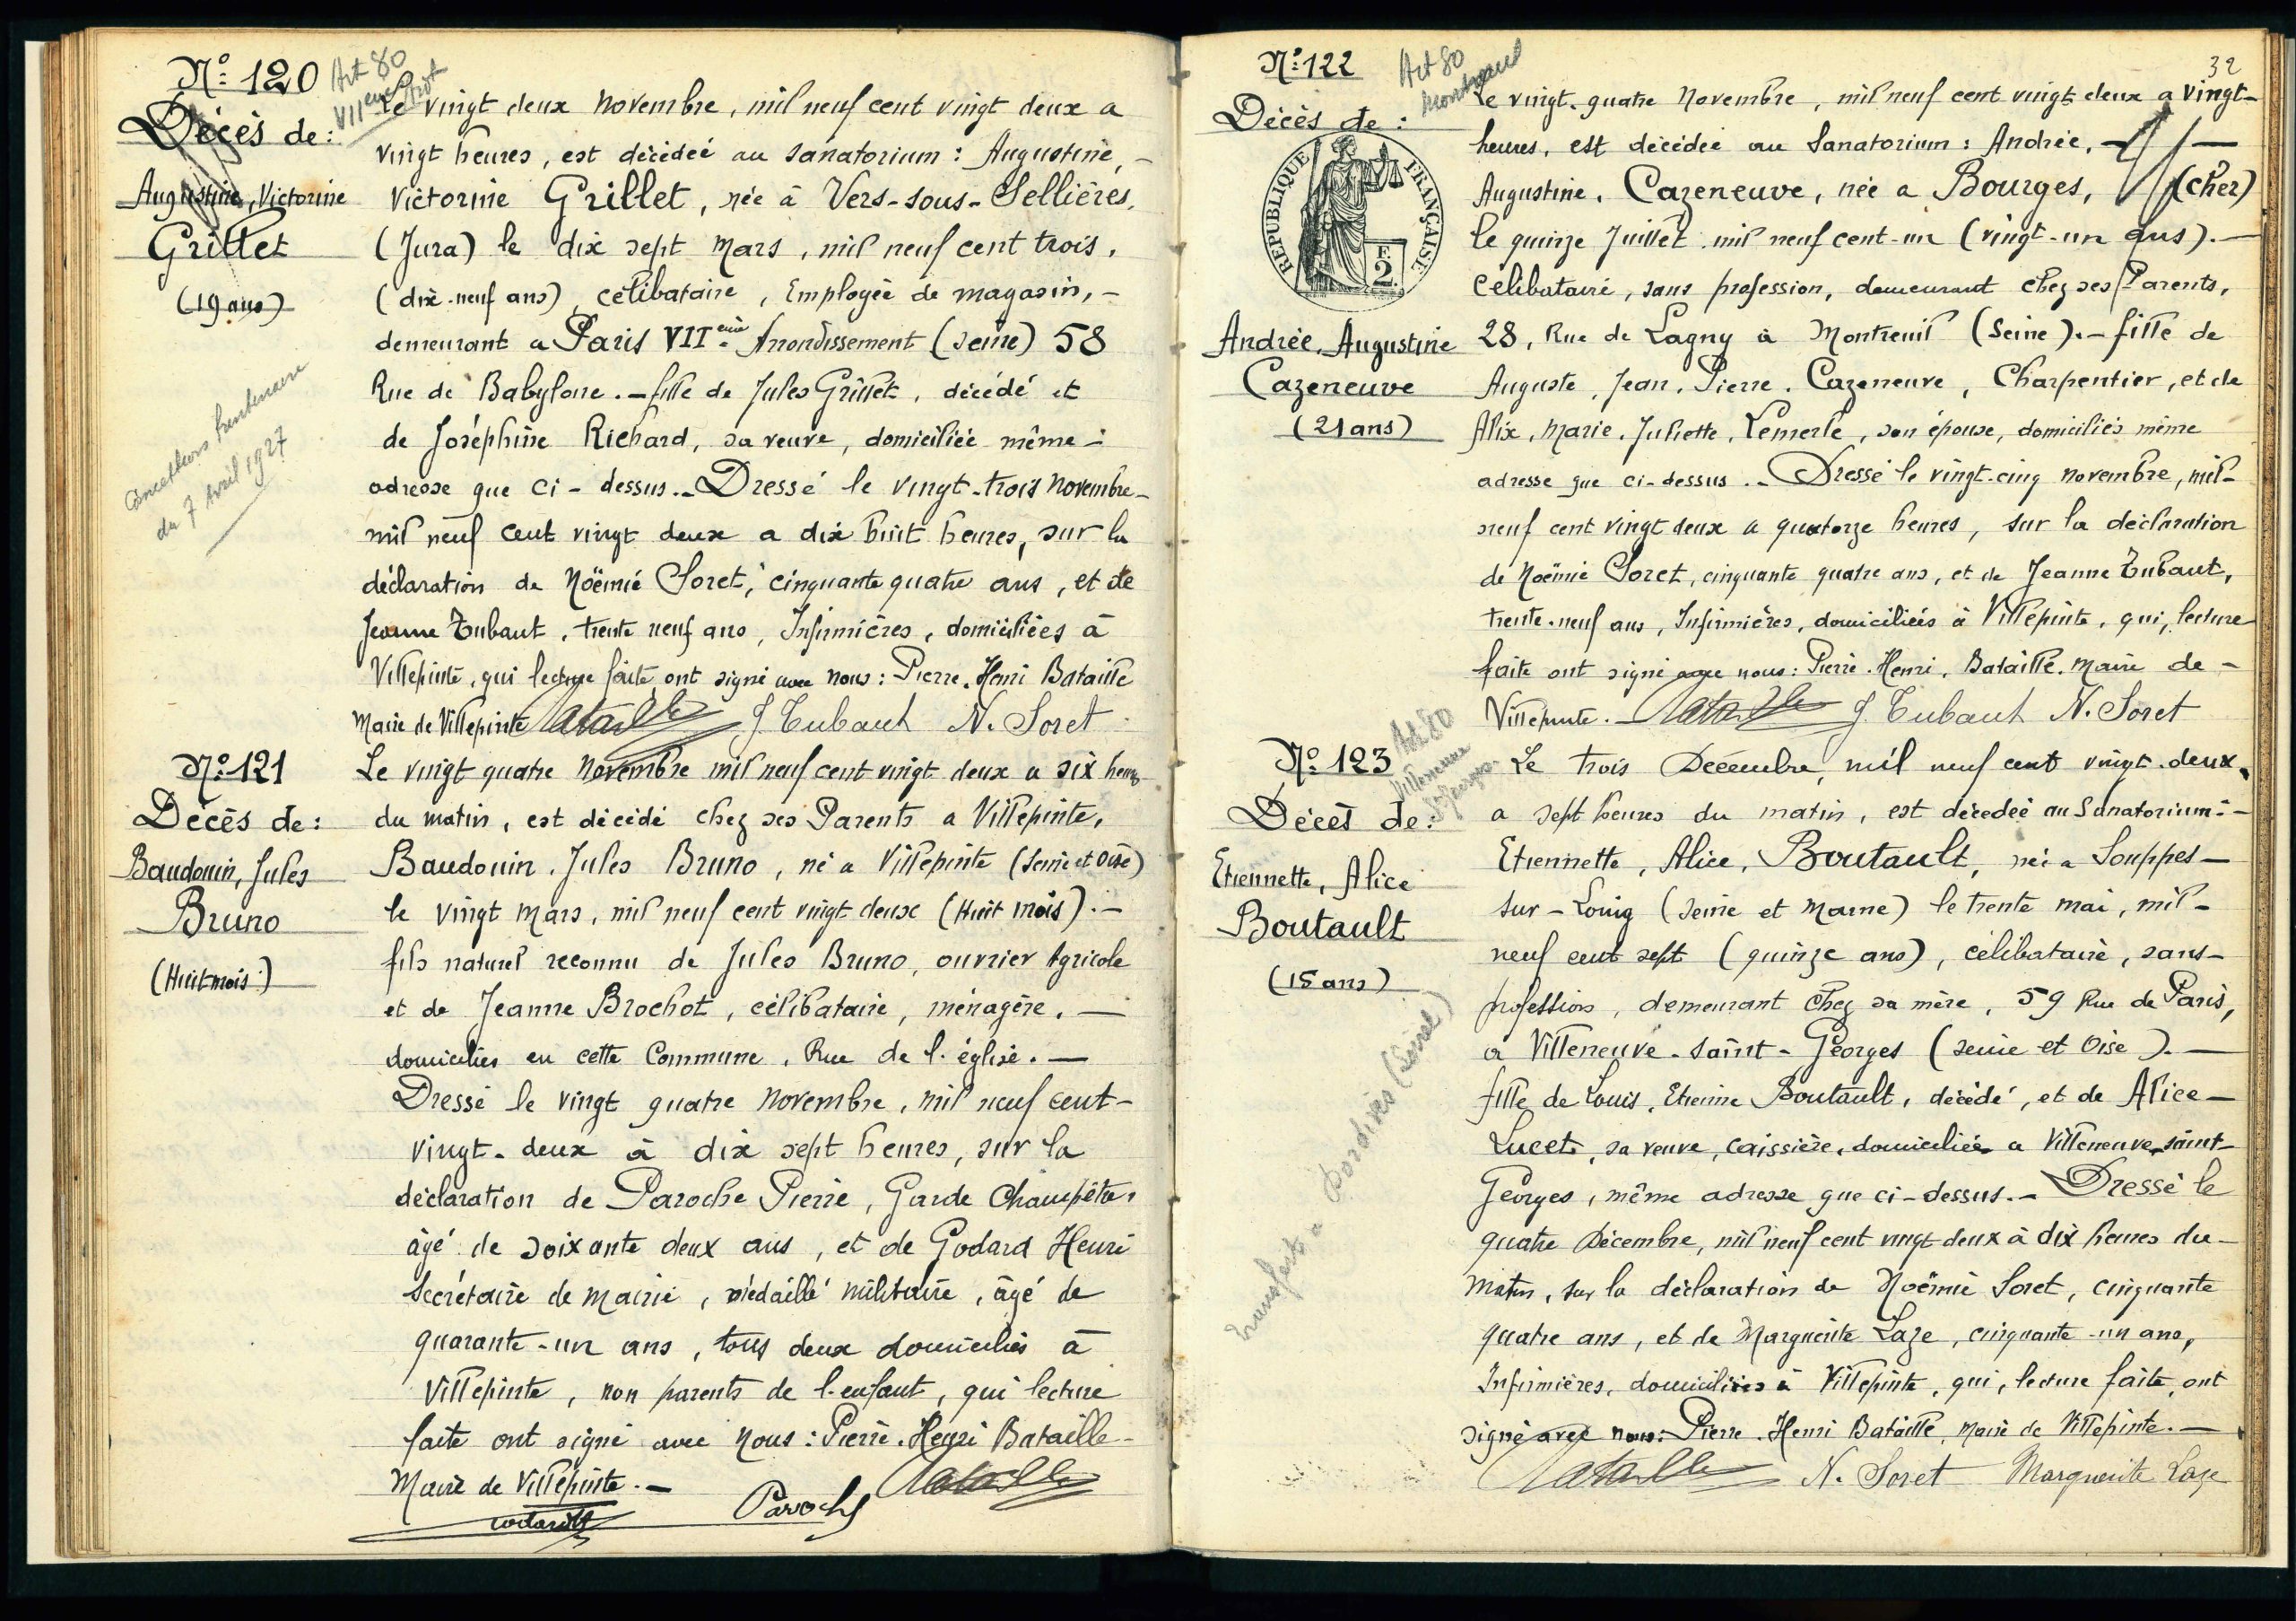 Nº 120
Art 80
VIIème Arrt
Décès de:
Augustine, Victorine
Grillet
(19 ans)
du 7 Avril 1927
Le vingt deux Novembre, mil neuf cent vingt deux a
vingt heures, est décédée au sanatorium : Augustine, -
Victorine Grillet, née à Vers-sous-Sellières,
(Jura) le dix sept Mars, mil neuf cent trois,
(dix-neuf ans), célibataire, Employée de magasin, -
demeurant a Paris VIIème Arrondissement (Seine) 58
Rue de Babylone. - fille de Jules Grillet, décédé et
de Joséphine Richard, sa veuve, domiciliée même -
adresse que ci-dessus. - Dressé le vingt-trois Novembre -
mil neuf cent vingt deux a dix huit heures, sur la
déclaration de Noëmie Soret, cinquante quatre ans, et de
Jeanne Tubaut, trente neuf ans, Infirmières, domiciliées à
Villepinte, qui lecture faite, ont signé avec nous : Pierre. Henri Bataille
Maire de Villepinte Bataille J. Tubaut N. Soret
Nº 121
Décès de:
Baudouin, Jules
Bruno
(Huit mois)
Le vingt quatre Novembre mil neuf cent vingt deux a six heures
du matin, est décédé chez ses Parents a Villepinte,
Baudouin. Jules Bruno, né a Villepinte (Seine et Oise)
le vingt Mars, mil neuf cent vingt deux (Huit mois). -
fils naturel reconnu de Jules Bruno, ouvrier Agricole
et de Jeanne Brochot, célibataire, ménagère. -
domiciliés en cette Commune, Rue de l'église. -
Dressé le vingt quatre Novembre, mil neuf cent -
vingt-deux à dix sept heures, sur la
déclaration de Paroche Pierre, Garde Champêtre,
âgé de soixante deux ans, et de Godard Henri
Secrétaire de Mairie, médaillé militaire, âgé de
quarante-un ans, tous deux domiciliés à
Villepinte, non parents de l'enfant, qui lecture
faite ont signé avec Nous : Pierre. Henri Bataille -
Maire de Villepinte. -
Godard Paroche Bataille
32
Nº 122
Art 80
Montreuil
Décès de :
RÉPUBLIQUE FRANÇAISE
F.
2.
Andrée, Augustine
Cazeneuve
(21 ans)
Le vingt-quatre Novembre, mil neuf cent vingt deux a vingt -
heures, est décédée au Sanatorium : Andrée, -
Augustine. Cazeneuve, née a Bourges, (Cher)
le quinze Juillet mil neuf cent-un (vingt-un ans). -
Célibataire, sans profession, demeurant chez ses Parents,
28, Rue de Lagny à Montreuil (Seine). - fille de
Auguste, Jean, Pierre. Cazeneuve, Charpentier, et de
Alix, Marie, Juliette, Lemerle, son épouse, domiciliés même
adresse que ci-dessus. - Dressé le vingt-cinq Novembre, mil -
neuf cent vingt deux a quatorze heures, sur la déclaration
de Noëmie Soret, cinquante quatre ans, et de Jeanne Tubaut,
trente-neuf ans, Infirmières, domiciliées à Villepinte, qui, lecture
faite ont signé avec nous : Pierre. Henri, Bataille. Maire de -
Villepinte. - Bataille J. Tubaut N. Soret
Nº 123
Art 80
Villeneuve
St Georges
Décès de :
Etiennette, Alice
Boutault
(15 ans)
Le trois Décembre, mil neuf cent vingt-deux,
a sept heures du matin, est décédée au Sanatorium : -
Etiennette, Alice, Boutault, née a Souppes -
sur-Loing (Seine et Marne) le trente mai, mil -
neuf cent sept (quinze ans), célibataire, sans -
profession, demeurant chez sa mère, 59 Rue de Paris,
a Villeneuve-saint-Georges (Seine et Oise). -
fille de Louis, Etienne Boutault, décédé, et de Alice -
Lucet, sa veuve, caissière, domiciliée a Villeneuve-saint -
Georges, même adresse que ci-dessus. - Dressé le
quatre Décembre, mil neuf cent vingt deux à dix heures du -
matin, sur la déclaration de Noëmie Soret, cinquante
quatre ans, et de Marguerite Laze, cinquante-un ans,
Infirmières, domiciliées à Villepinte, qui, lecture faite, ont
signé avec nous : Pierre. Henri Bataille, Maire de Villepinte. -
Bataille N. Soret Marguerite Laze